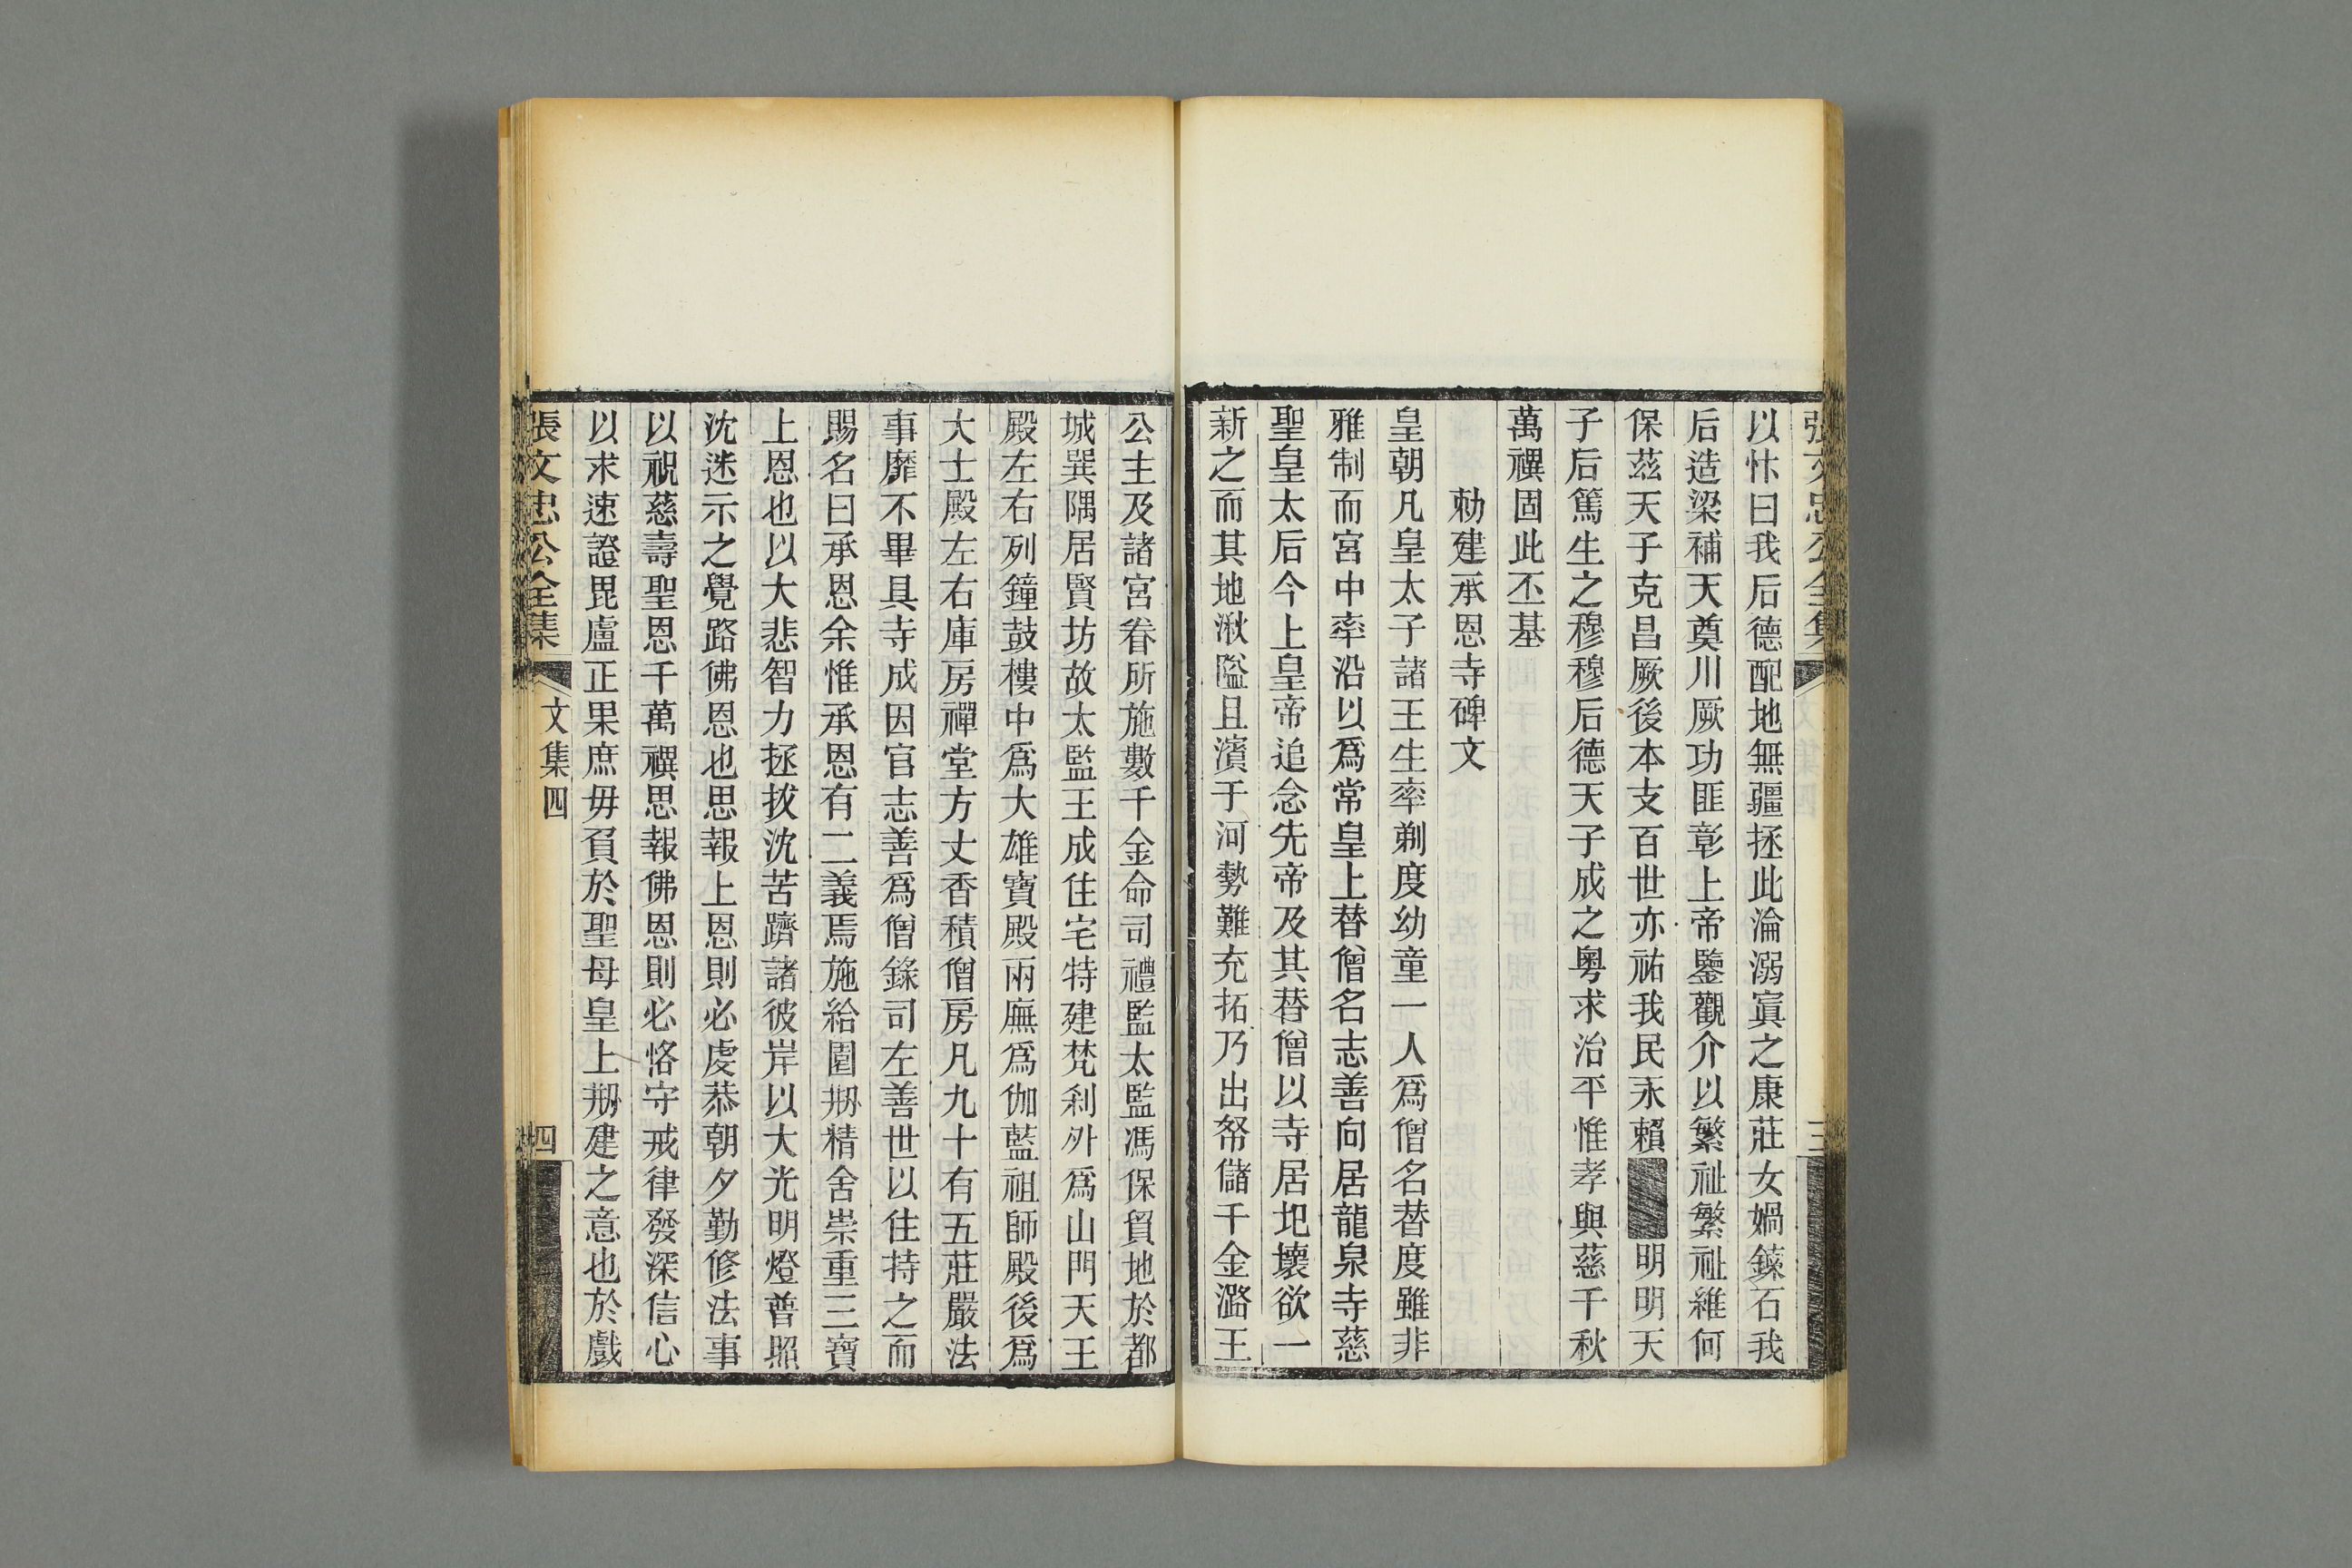 張文忠公全集 三
以忭曰我后德配地無疆拯此淪溺寘之康莊女媧鍊石我
后造梁補天奠川厥功匪彰上帝鑒觀介以繁祉繁祉維何
保茲天子克昌厥後本支百世亦祐我民永賴明明天
子后篤生之穆穆后德天子成之粵求治平惟孝與慈千秋
萬禩固此丕基
勑建承恩寺碑文
皇朝凡皇太子諸王生率剃度幼童一人為僧名替度雖非
雅制而宮中率沿以為常皇上替僧名志善向居龍泉寺慈
聖皇太后今上皇帝追念先帝及其替僧以寺居圯壞欲一
新之而其地湫隘且濱于河勢難充拓乃出帑儲千金潞王
公主及諸宮眷所施數千金命司禮監太監馮保貿地於都
城巽隅居賢坊故太監王成住宅特建梵剎外為山門天王
殿左右列鐘鼓樓中為大雄寶殿兩廡為伽藍祖師殿後為
大士殿左右庫房禪堂方丈香積僧房凡九十有五莊嚴法
事靡不畢具寺成因官志善為僧錄司左善世以住持之而
賜名曰承恩余惟承恩有二義焉施給園剏精舍崇重三寶
上恩也以大悲智力拯拔沈苦躋諸彼岸以大光明燈普照
沈迷示之覺路佛恩也思報上恩則必虔恭朝夕勤修法事
以祝慈壽聖恩千萬禩思報佛恩則必恪守戒律發深信心
以求速證毘盧正果庶毋負於聖母皇上剏建之意也於戲
張文忠公全集 文集四 四